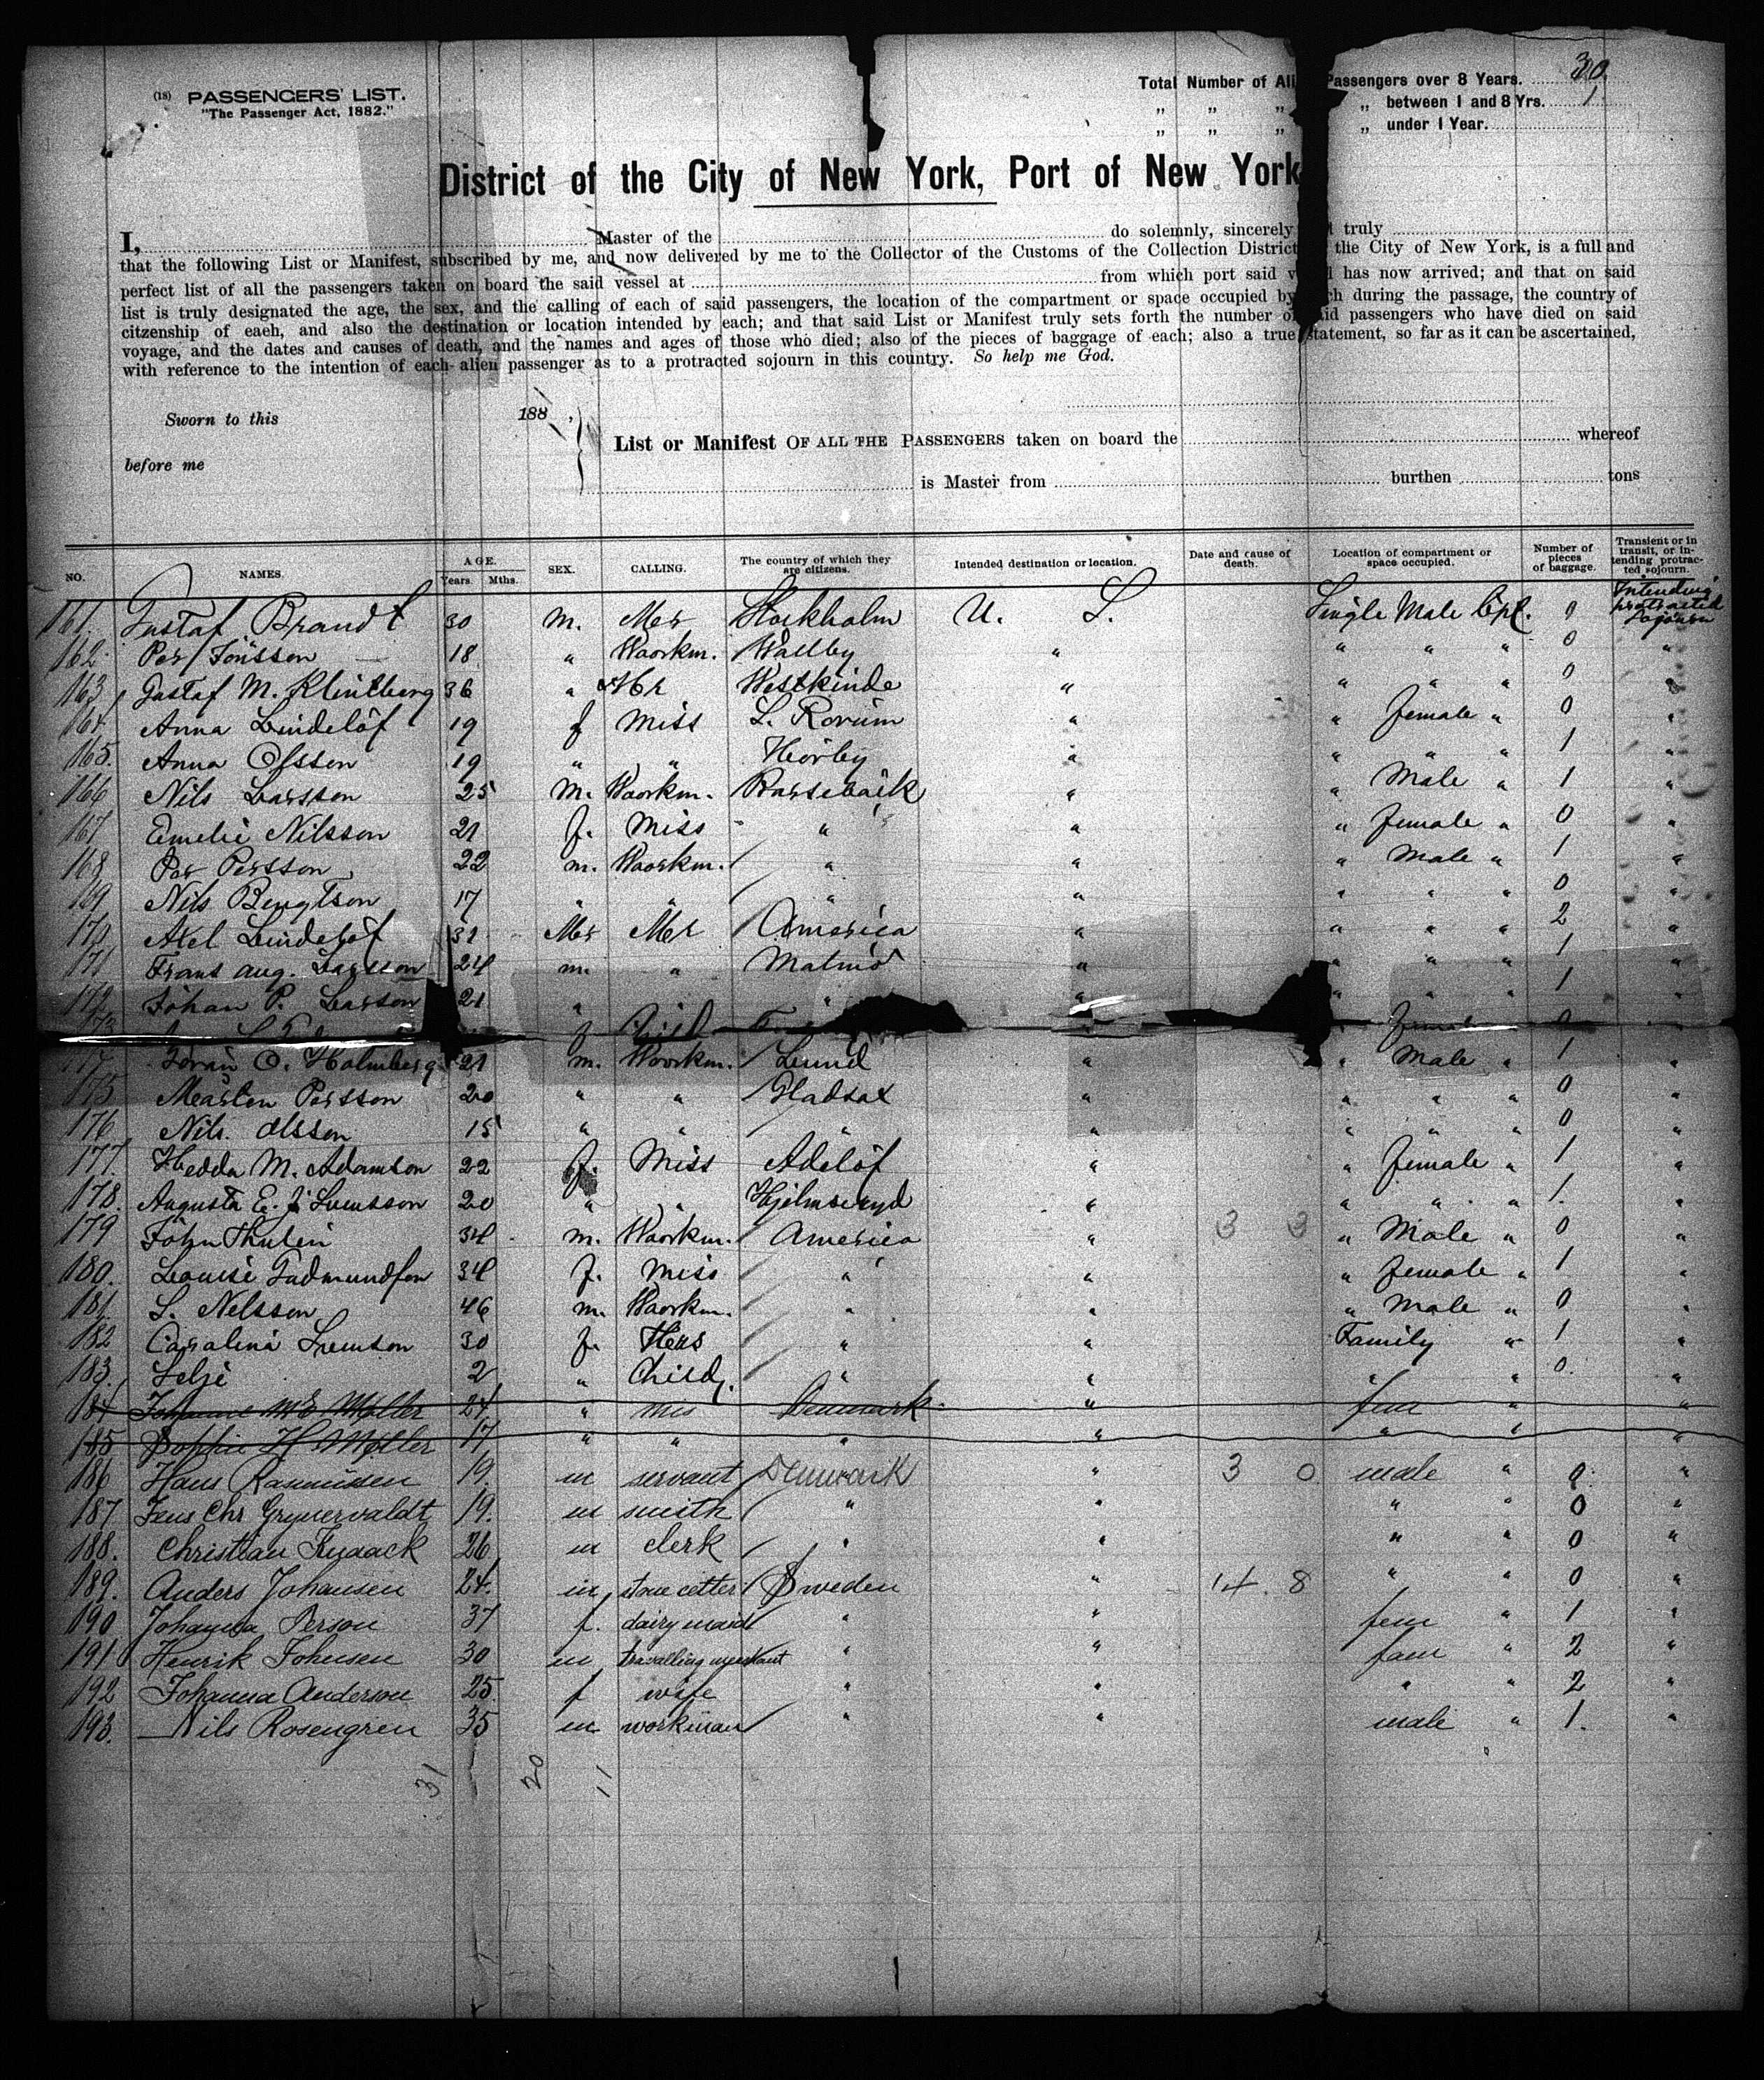 (18) PASSENGERS' LIST.
"The Passenger Act, 1882."
Total Number of Ali Passengers over 8 Years. 30
„ „ „ „ between 1 and 8 Yrs. 1
„ „ „ „ under 1 Year.
District of the City of New York, Port of New York
I, Master of the do solemnly, sincerely truly
that the following List or Manifest, subscribed by me, and now delivered by me to the Collector of the Customs of the Collection District the City of New York, is a full and
perfect list of all the passengers taken on board the said vessel at from which port said has now arrived; and that on said
list is truly designated the age, the sex, and the calling of each of said passengers, the location of the compartment or space occupied by during the passage, the country of
citzenship of eaeh, and also the destination or location intended by each; and that said List or Manifest truly sets forth the number passengers who have died on said
voyage, and the dates and causes of death, and the names and ages of those who died; also of the pieces of baggage of each; also a true statement, so far as it can be ascertained,
with reference to the intention of each alien passenger as to a protracted sojourn in this country. So help me God.
Sworn to this 188 ,
List or Manifest OF ALL THE PASSENGERS taken on board the whereof
before me
is Master from burthen tons
NO. NAMES. AGE. Years. Mths. SEX. CALLING. The country of which they are citizens. Intended destination or location. Date and cause of death. Location of compartment or space occupied. Number of pieces of baggage. Transient or in transit, or intending protracted sojourn.
161. Gustaf Brandt 30 m. Mr Stockholm U. S. Single Male Cpt. 0 Intending protracted Sojourn
162. Per Jönsson 18 " Woorkm. Wallby " " " " 0 "
163 Gustaf M. Klintberg 36 " Mr Westkinde " " " " 0 "
164. Anna Lindelöf 19 f Miss L. Rorum " " female " 0 "
165. Anna Olsson 19 " " Hörby " " " " 1 "
166 Nils Larsson 25 m. Woorkm. Barsebäck " " Male " 1 "
167 Emelie Nilsson 21 f. Miss " " " female " 0 "
168 Per Persson 22 m. Woorkm. " " " Male " 1 "
169 Nils Bengtson 17 " " " " " " " 0 "
170 Axel Lindelöf 31 Mr Mr America " " " " 2 "
171 Frans Aug. Larsson 24 m. " Malmö " " " " 1 "
172 Johan P. Larson 21 " " " " " " 1 "
173 Child
Holmberg 21 m. Woorkm. Lund " " Male " 1 "
175 Mårten Persson 20 " " Gladsax " " " " 0 "
176 Nils Olsson 15 " " " " " " " 0 "
177. Hedda M. Adamson 22 f. Miss Adelöf " " female " 1 "
178. Augusta E. J. Svensson 20 " " Hjelmseryd " " " " 1. "
179 John Thulin 34 m. Woorkm. America " 3 3 " Male " 0 "
180. Louise Gudmundson 34 f. Miss " " " female " 1 "
181. S. Nelsson 46 m. Woorkm. " " " Male " 0 "
182 Carolina Svenson 30 f. " " Family " 1 "
183. 2 " Child " " " " 0. "
184 Johanne M E Möller 24 " Mis Denmark " fem " "
185 Sophie H Möller 17 " " " " " " "
186 Hans Rasmussen 19. m servant Denmark " 3 0 male " 0. "
187 Jens Chr Grynervaldt 19. m smith " " " " 0 "
188. Christian Knaack 26 m clerk " " " " 0 "
189. Anders Johansen 24. m Sweden " 14. 8 " " 0 "
190 Johanna Person 37 f. dairy maid " " fem " 1 "
191 Henrik Johnsen 30 m travelling merchant " " fam " 2 "
192 Johanna Anderson 25. f wife " " " " 2 "
193. Nils Rosengren 35 m workman " " male " 1. "
31 20 11